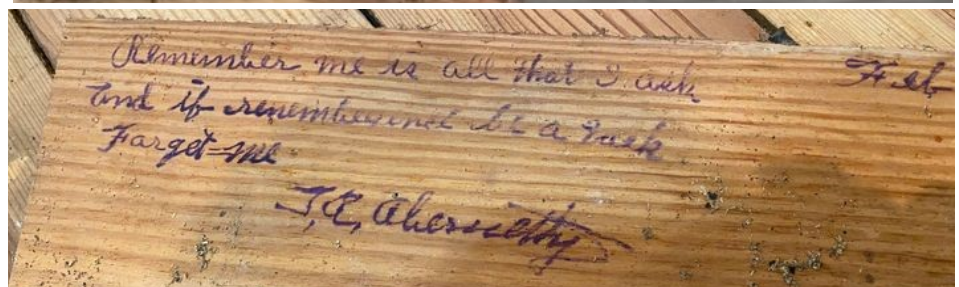 Remember me is all that I ask Feb
And if remembering be a task
Forget me
J.R. Abernethy